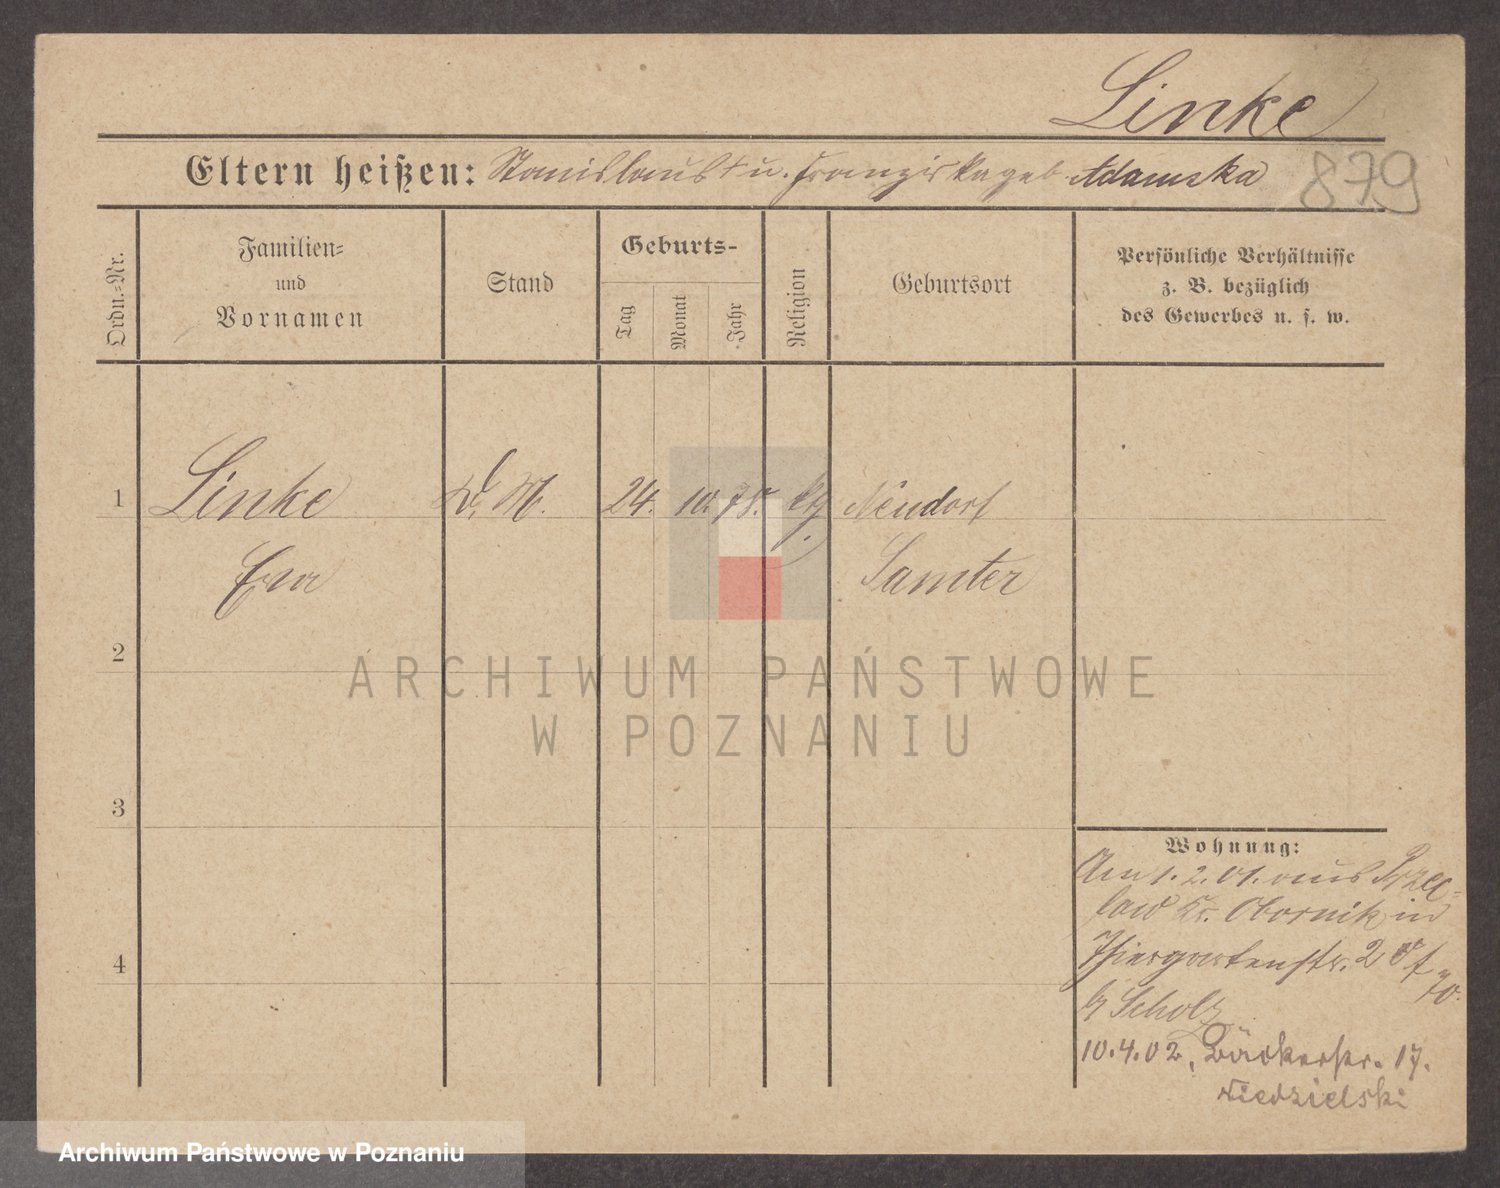 Linke
Eltern heißen: Stanislaus † u. Franziska geb. Adamska
879
Ordn.=Nr.
Familien=
und
Vornamen
Stand
Geburts-
Tag
Monat
Jahr
Religion
Geburtsort
Persönliche Verhältnisse
z. B. bezüglich
des Gewerbes u. s. w.
1 Linke D. M. 24. 10. 78. ktg Neudorf
Eva Samter
2
ARCHIWUM PAŃSTWOWE
W POZNANIU
3
4
Wohnung:
Am 1. 2. 01. aus
Kr. Obornik in
Thiergartenstr. 2
b/ Scholz
10.4.02. Bäckerstr. 17.
Niedzielski
Archiwum Państwowe w Poznaniu